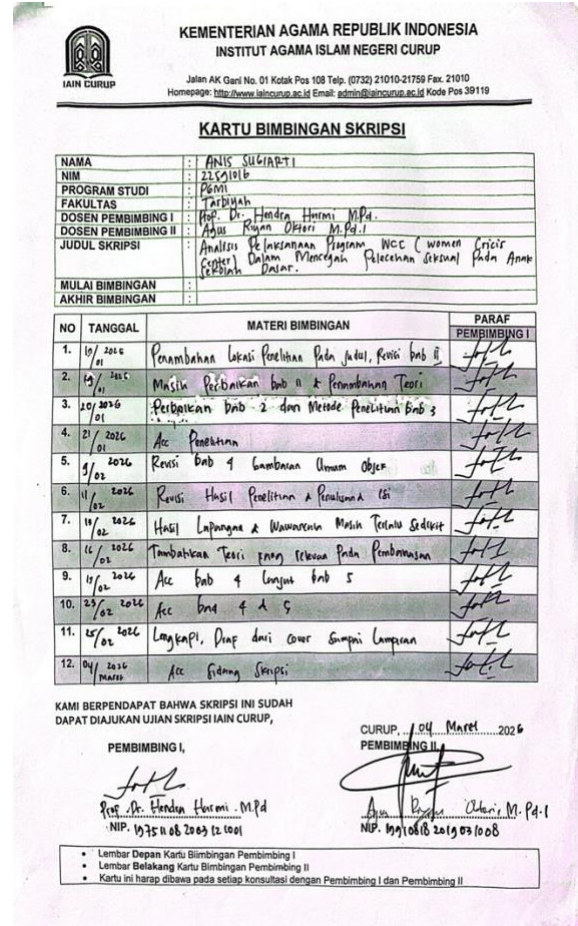 KEMENTERIAN AGAMA REPUBLIK INDONESIA
INSTITUT AGAMA ISLAM NEGERI CURUP
IAIN CURUP
Jalan AK Gani No. 01 Kotak Pos 108 Telp. (0732) 21010-21759 Fax. 21010
Homepage: http://www.iaincurup.ac.id Email: admin@iaincurup.ac.id Kode Pos 39119
KARTU BIMBINGAN SKRIPSI
NAMA : ANIS SUGIARTI
NIM : 22591016
PROGRAM STUDI : PGMI
FAKULTAS : Tarbiyah
DOSEN PEMBIMBING I : Prof. Dr. Hendra Harmi M.Pd.
DOSEN PEMBIMBING II : Agus Riyan Oktori M.Pd.I
JUDUL SKRIPSI : Analisis Pelaksanaan Program WCC (women Cricis
Center) Dalam Mencegah Pelecehan Seksual Pada Anak
Sekolah Dasar.
MULAI BIMBINGAN :
AKHIR BIMBINGAN :
NO TANGGAL MATERI BIMBINGAN PARAF
PEMBIMBING I
1. 2026 /01 Penambahan Lokasi Penelitian Pada Judul, Revisi bab II
2. 19/01 2026 Masih Perbaikan bab II & Penambahan Teori
3. 20/01 2026 Perbaikan bab 2 dan Metode Penelitian bab 3
4. 21/01 2026 Acc Penelitian
5. 9/02 2026 Revisi bab 4 Gambaran Umum Objek
6. 11/02 2026 Revisi Hasil Penelitian & isi
7. /02 2026 Hasil Lapangan & Wawancara Masih Terlalu Sedikit
8. 16/02 2026 Tambahkan Teori yang relevan Pada Pembahasan
9. /02 2026 Acc bab 4 Lanjut bab 5
10. 23/02 2026 Acc bab 4 & 5
11. 25/02 2026 Lengkapi, Draf dari cover Sampai Lampiran
12. 04/Maret 2026 Acc Sidang Skripsi
KAMI BERPENDAPAT BAHWA SKRIPSI INI SUDAH
DAPAT DIAJUKAN UJIAN SKRIPSI IAIN CURUP,
CURUP, 04 Maret 2026
PEMBIMBING I,
PEMBIMBING II,
Prof. Dr. Hendra Harmi. M.Pd
NIP. 19751108 2003 12 1001
Agus Riyan Oktori, M.Pd.I
NIP. 19910818 201903 1008
• Lembar Depan Kartu Biimbingan Pembimbing I
• Lembar Belakang Kartu Bimbingan Pembimbing II
• Kartu ini harap dibawa pada setiap konsultasi dengan Pembimbing I dan Pembimbing II